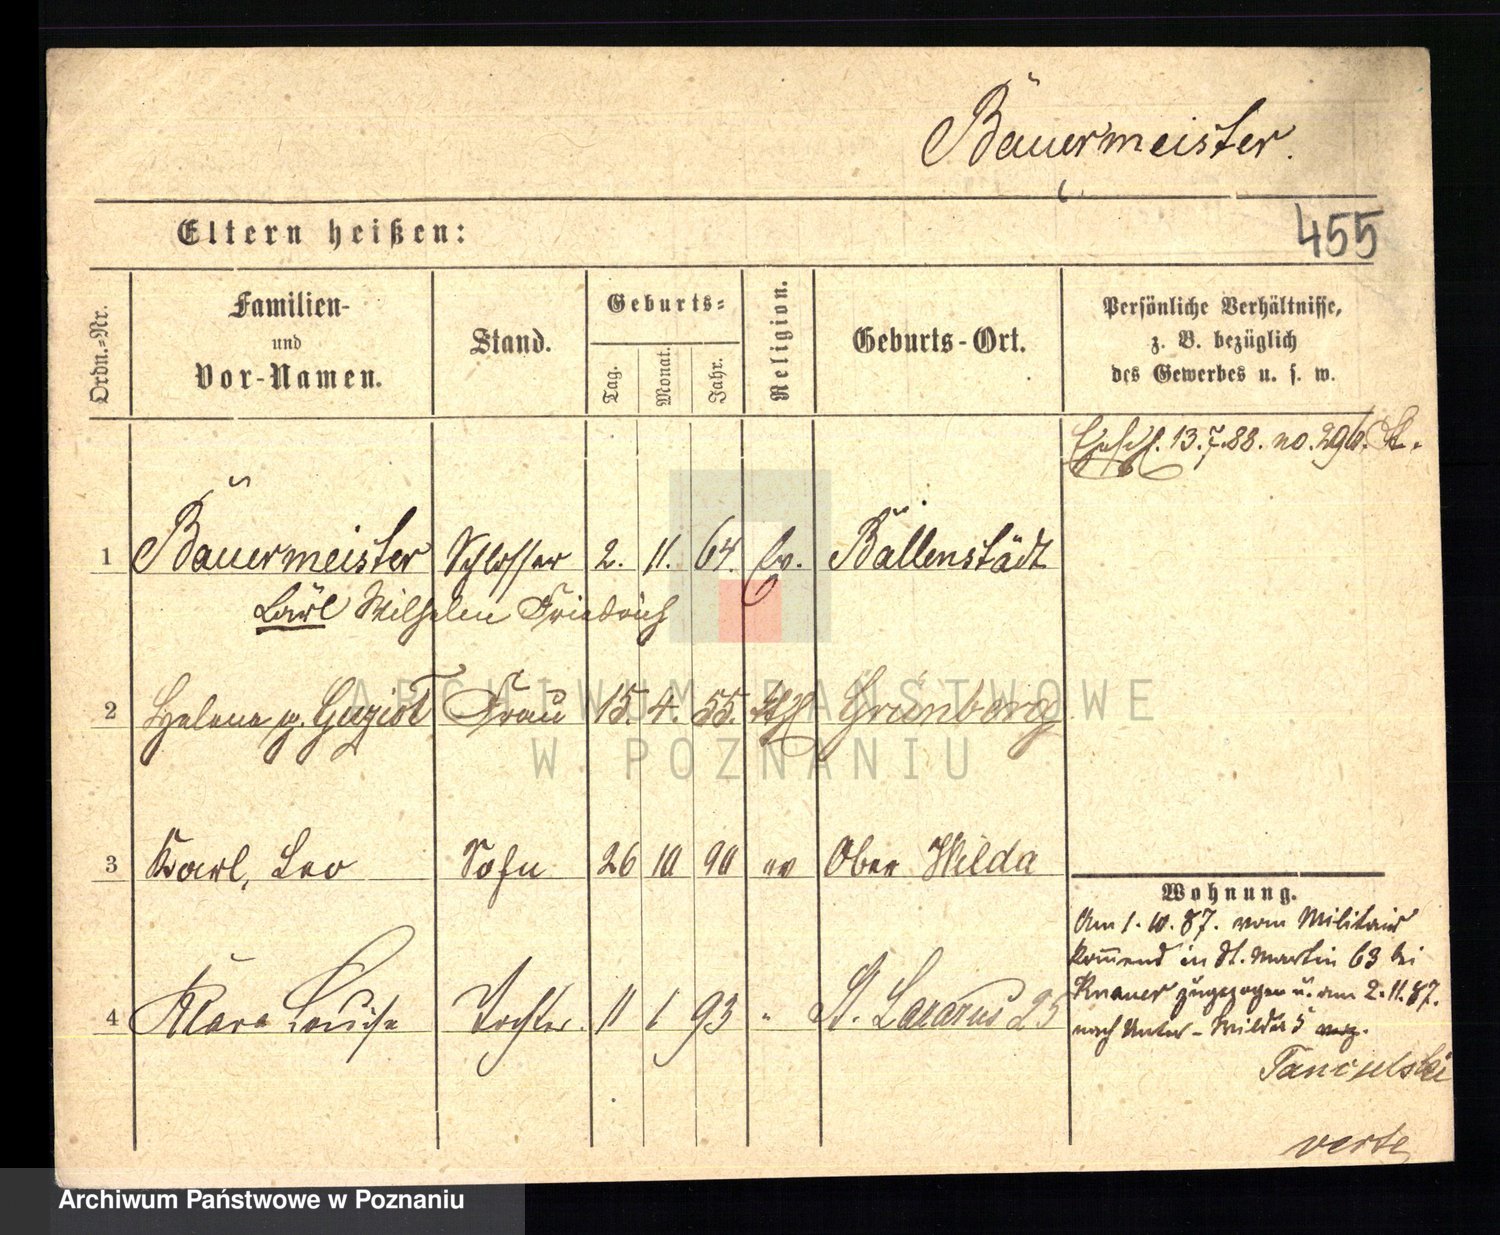 Bauermeister.
455
Eltern heißen:
Ordn.-Nr.
Familien-
und
Vor-Namen.
Stand.
Geburts-
Tag.
Monat.
Jahr.
Religion.
Geburts-Ort.
Persönliche Verhältnisse,
z. B. bezüglich
des Gewerbes u. s. w.
13.7.88. no. 296. St.
1 Bauermeister Schlosser 2. 11. 64. ev. Ballenstädt
Karl Wilhelm Friedrich
2 Helene g. Frau 15. 4. 55. kth Grünberg
3 Karl, Leo Sohn 26 10 90 ev Ober Wilda
4 Klara Louise Tochter. 11 1 93 " St. Lazarus 25
Wohnung.
Am 1. 10. 87. vom Militair
kommend in St. Martin 63 bei
Knauer zugezogen u. am 2. 11. 87.
nach Unter-Wilda 5 verz.
verte
ARCHIWUM PAŃSTWOWE
W POZNANIU
Archiwum Państwowe w Poznaniu